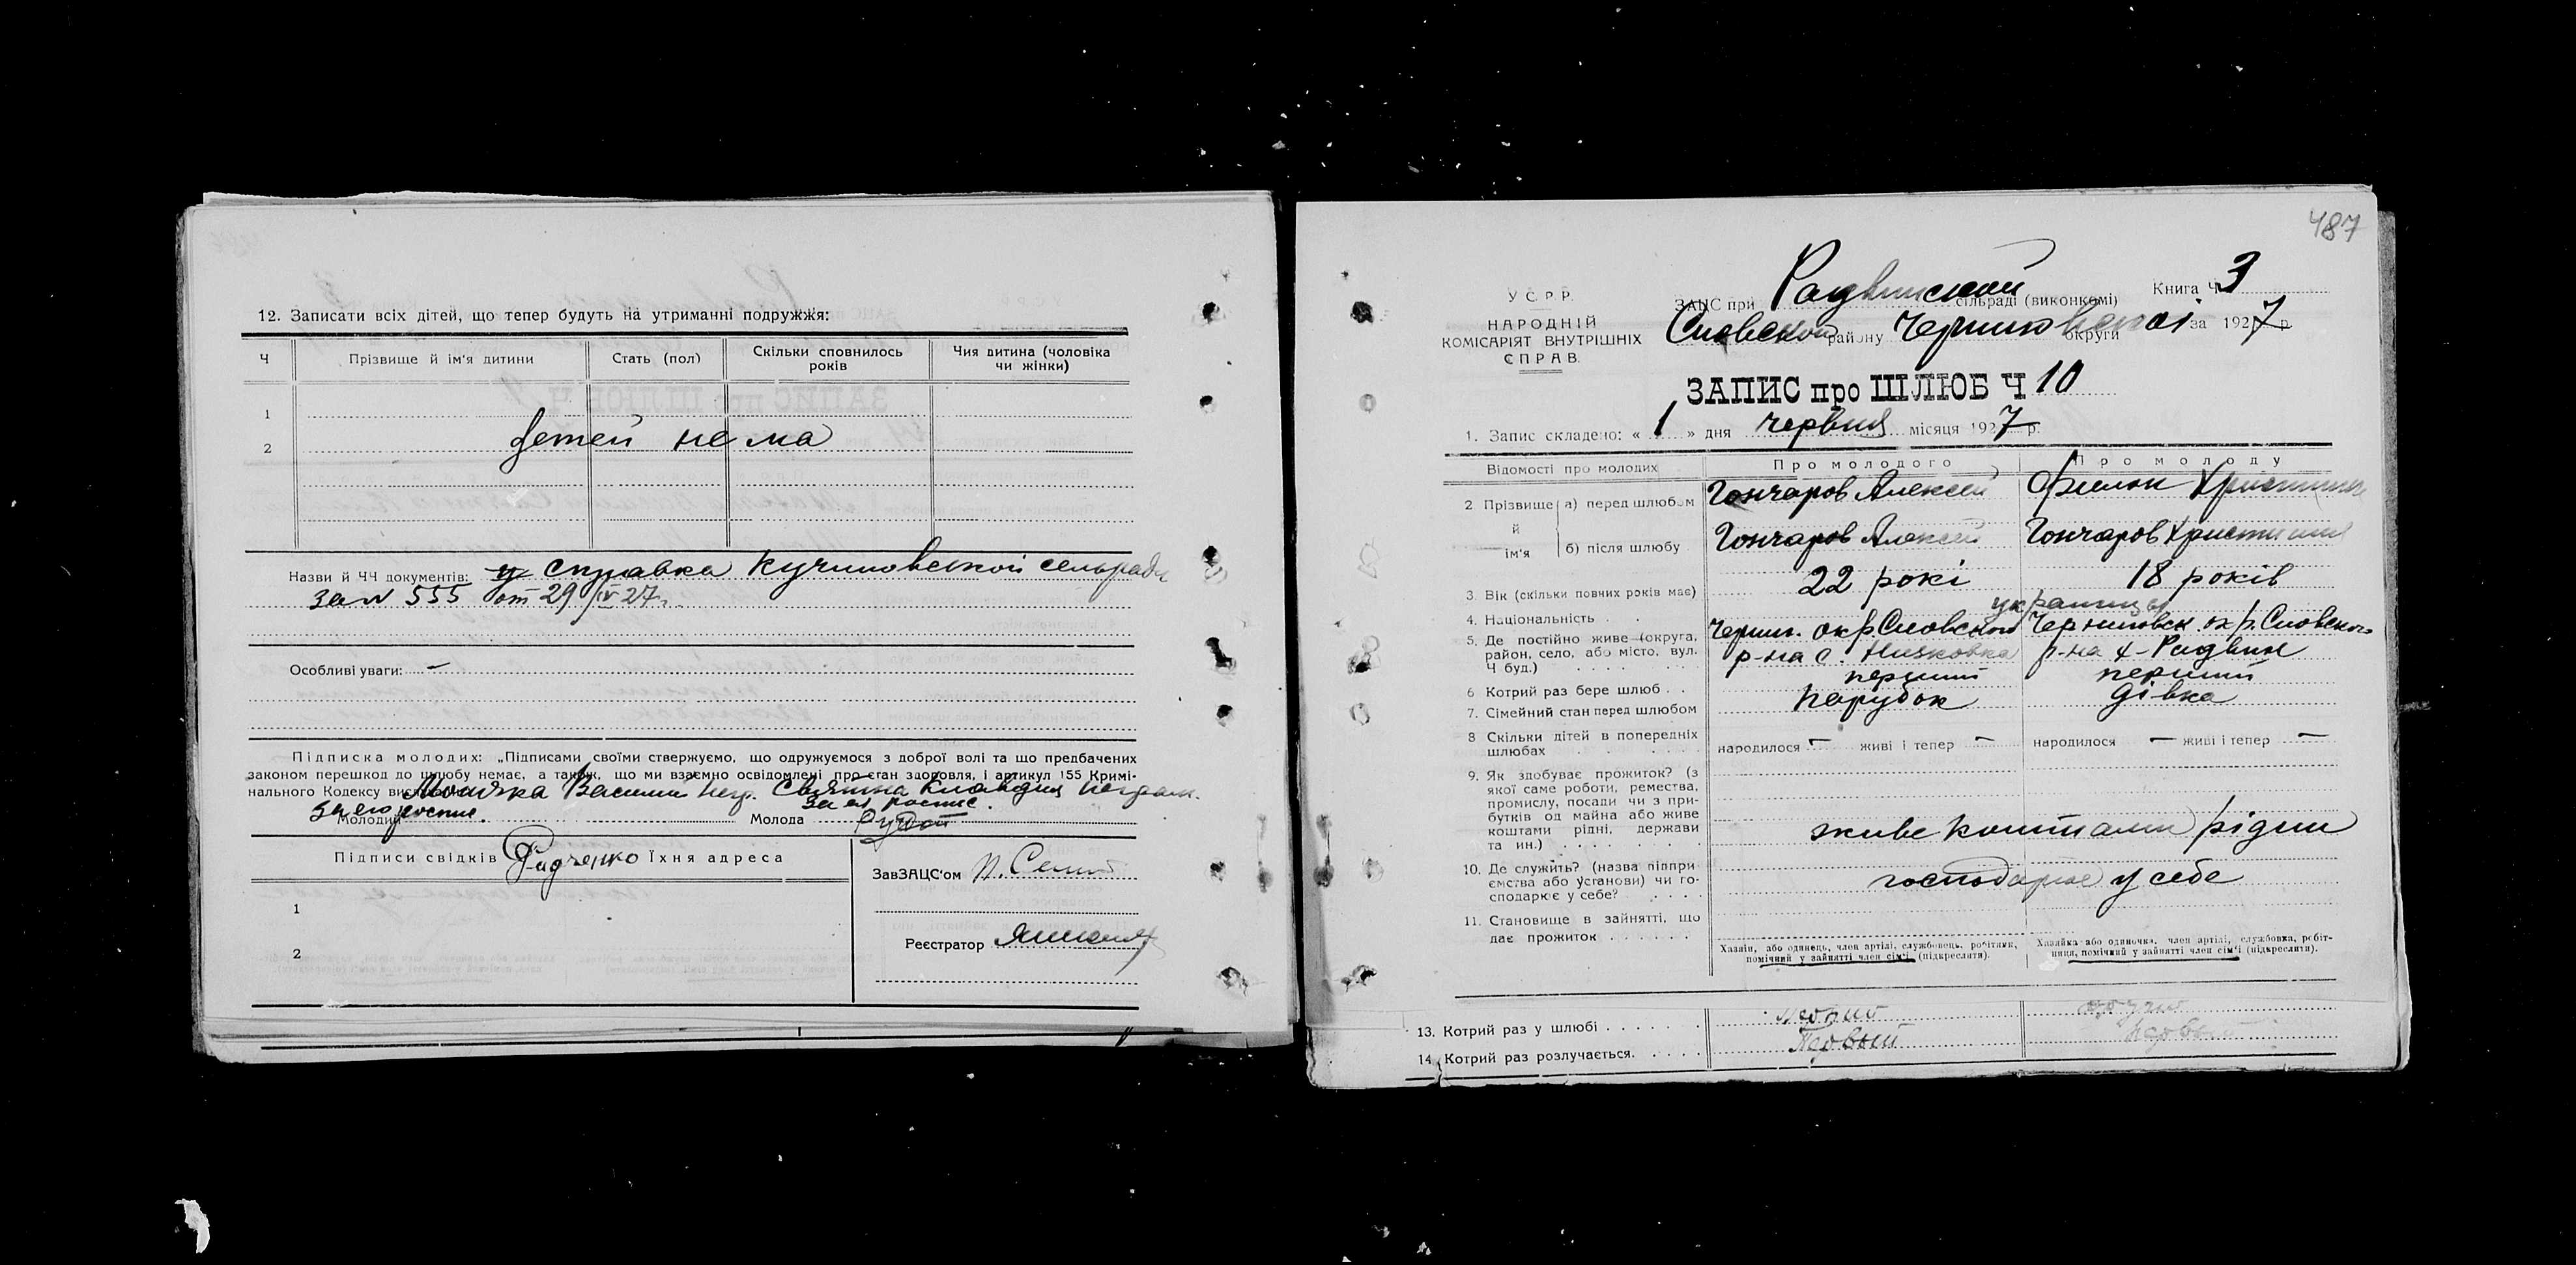 12. Записати всіх дітей, що тепер будуть на утриманні подружжя:
Ч Прізвище й ім'я дитини Стать (пол) Скільки сповнилось років Чия дитина (чоловіка чи жінки)
1
2
детей нема
Назви й ЧЧ документів: справка Кучиновской сельради
за № 555 от 29/IV 27 г.
Особливі уваги: —
Підписка молодих: „Підписами своїми стверджуємо, що одружуємося з доброї волі та що предбачених
законом перешкод до шлюбу немає, а також, що ми взаємно освідомлені про стан здоровля, і артикул 155 Кримі-
нального Кодексу Василий негр. Клавдия неграм.
за его роспис. за ея роспис.
Молодий Молода
Підписи свідків Радченко Їхня адреса
1
2
ЗавЗАЦС'ом
Реєстратор
487
У С. Р. Р.
НАРОДНІЙ
КОМІСАРІЯТ ВНУТРІШНІХ
СПРАВ.
ЗАЦС при Радвинской сільраді (виконкомі) Книга Ч 3
Сновской району Черниковской округи за 1927 р.
ЗАПИС про ШЛЮБ Ч 10
1. Запис складено: « 1 » дня червня місяця 1927 р.
Відомості про молодих Про молодого Про молоду
2 Прізвище й ім'я а) перед шлюбом Гончаров Алексей Христина
б) після шлюбу Гончаров Алексей Гончаров Христина
3. Вік (скільки повних років має) 22 рокі 18 років
4. Національність . . украинцы
5. Де постійно живе (округа, район, село, або місто, вул. Ч буд.) Черниг. окр Сновского р-на с. Низковка Черниговск. окр. Сновского р-на х- Радвин
6 Котрий раз бере шлюб . . перший перший
7. Сімейний стан перед шлюбом парубок дівка
8 Скільки дітей в попередніх шлюбах народилося — живі і тепер — народилося — живі і тепер —
9. Як здобуває прожиток? (з якої саме роботи, ремества, промислу, посади чи з прибутків од майна або живе коштами рідні, держави та ин.) живе коштами рідни
10. Де служить? (назва підприємства або установи) чи господарює у себе? господарює у себе
11. Становище в зайнятті, що дає прожиток
Хазяїн, або одинець, член артілі, службовець, робітник, помічний у зайнятті член сім'ї (підкреслити).
Хазяйка або одиночка, член артілі, службовка, робітниця, помічний у зайнятті член сім'ї (підкреслити).
13. Котрий раз у шлюбі
14. Котрий раз розлучається. Первый первый